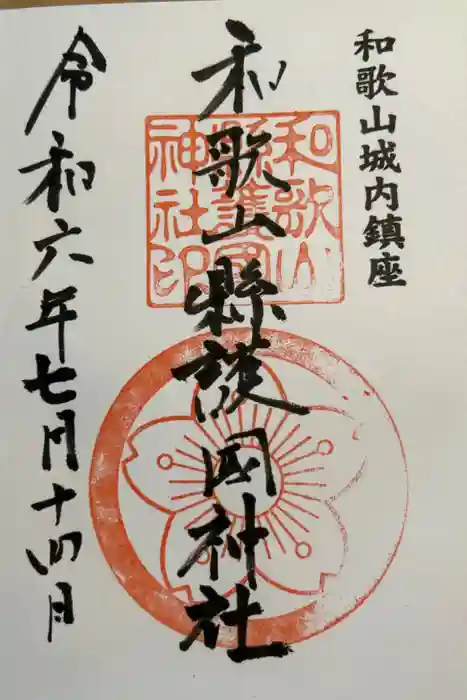 和歌山城内鎮座
和歌山縣護國神社
和歌山
縣護國
神社印
令和六年七月十四日